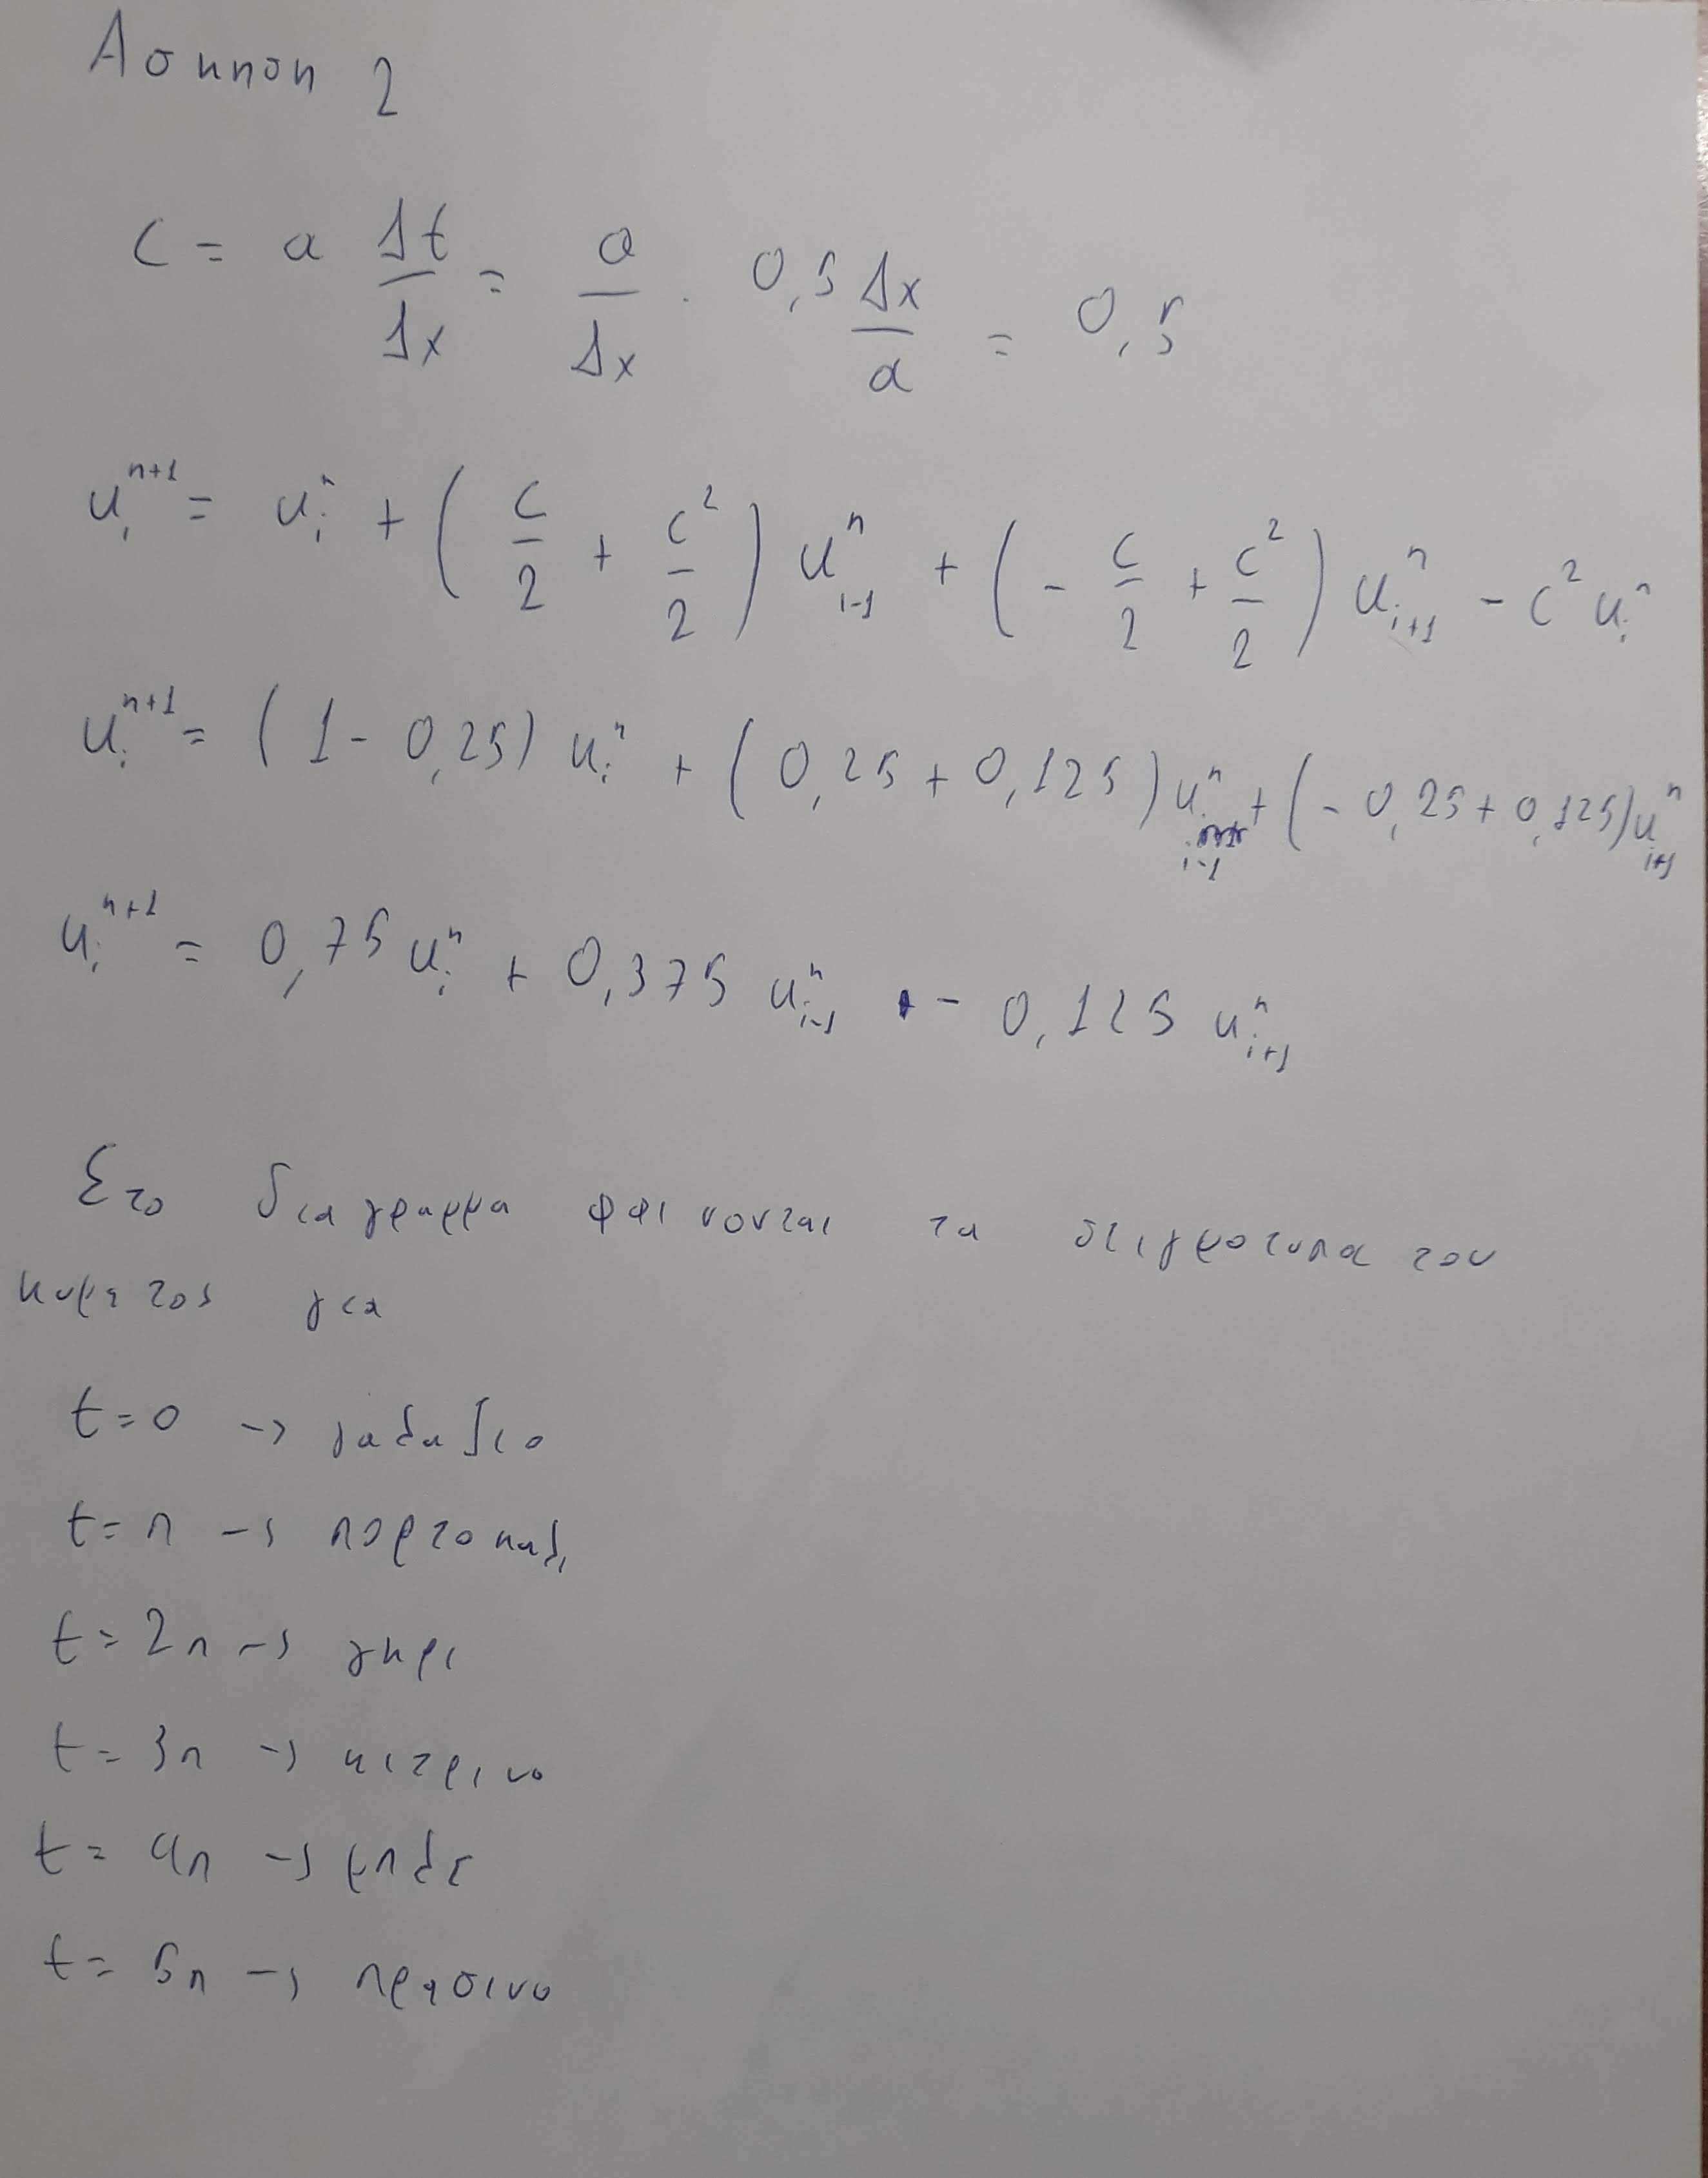 Άσκηση 2
C = a Δt/Δx = a/Δx · 0,5 Δx/a = 0,5
u_i^{n+1} = u_i^n + (C/2 + C²/2) u_{i-1}^n + (- C/2 + C²/2) u_{i+1}^n - C² u_i^n
u_i^{n+1} = (1 - 0,25) u_i^n + (0,25 + 0,125) u_{i-1}^n + (- 0,25 + 0,125) u_{i+1}^n
u_i^{n+1} = 0,75 u_i^n + 0,375 u_{i-1}^n - 0,125 u_{i+1}^n
Στο διαγραμμα φαινονται τα στιγμιοτυπα του
κυματος για
t=0 -> γαλαζιο
t=π -> πορτοκαλι
t=2π -> γκρι
t=3π -> κιτρινο
t=4π -> μπλε
t=5π -> πρασινο